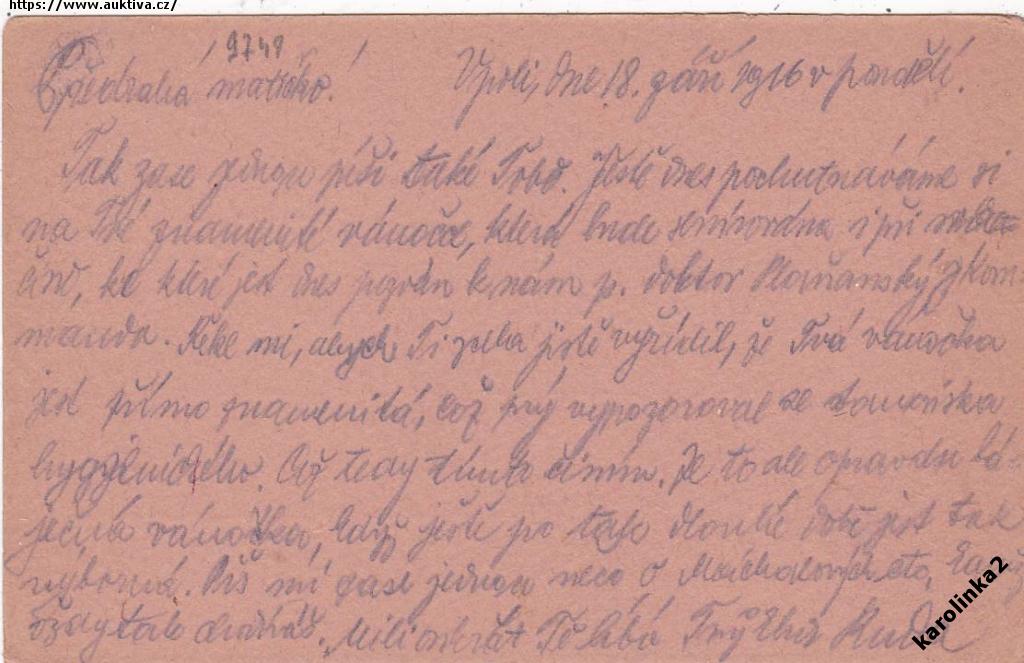 https://www.auktiva.cz/
9748
Předrahá matičko! V poli, dne 18. září 1916 v pondělí.
Tak zase jednou píši také Tobě. Ještě dnes pochutnáváme si
na Tvé znamenité vánočce, která bude servírována i při
ke které jest dnes pozván k nám p. doktor z kom-
manda. Řekl mi, abych Ti zcela jistě vyřídil, že Tvá vánočka
jest přímo znamenitá, což prý vypozoroval se stanoviska
hygienického. Což tedy tímto činím. Je to ale opravdu bá-
ječná vánočka, když ještě po tak dlouhé době jest tak
výborná. Piš mi zase jednou něco o
tak Milionkrát Tě líbá Tvůj Ruda
karolinka2